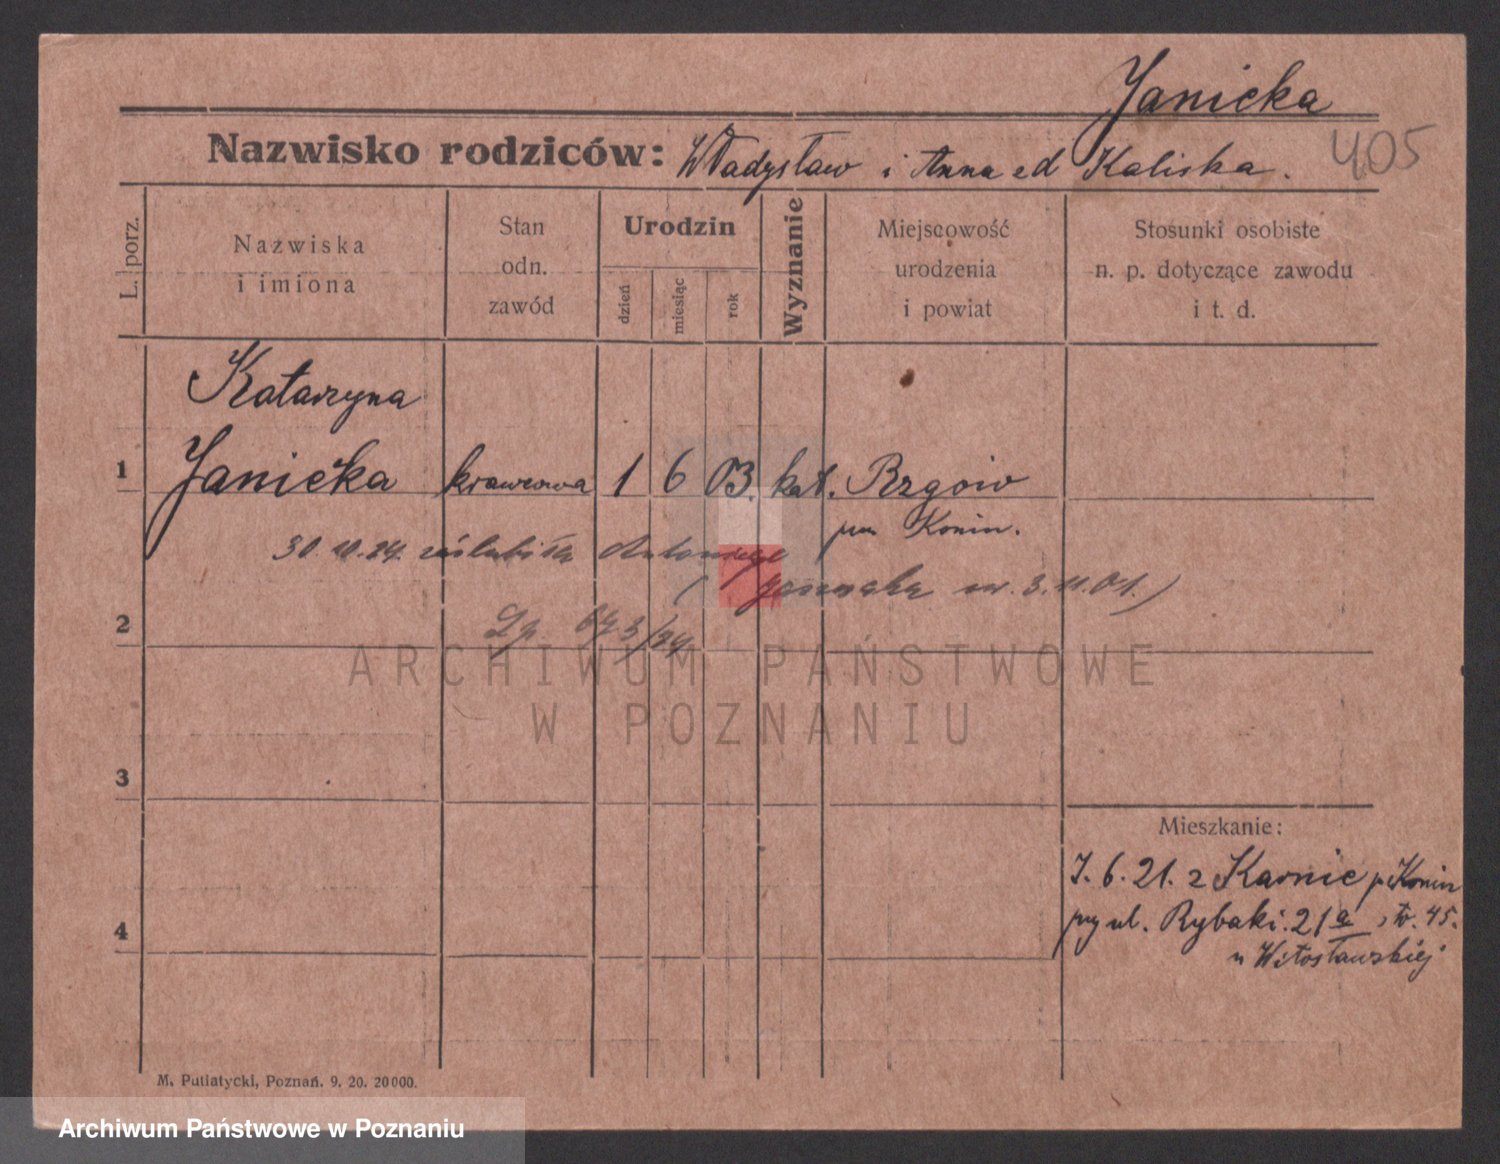 Janicka
Nazwisko rodziców: Władysław i Anna ed Kaliska.
405
L. porz.
Nazwiska i imiona
Stan odn. zawód
Urodzin
dzień
miesiąc
rok
Wyznanie
Miejscowość urodzenia i powiat
Stosunki osobiste n. p. dotyczące zawodu i t. d.
Katarzyna
1 Janicka krawcowa 1 6 03. kat. Rzgów
pow Konin.
30.10.24. zaślubiła Antoniego
( nr. 3.11.01.)
2
Lp 673/24
ARCHIWUM PAŃSTWOWE
W POZNANIU
3
Mieszkanie:
7.6.21. z Karnic p Konin
4
przy ul. Rybaki. 21a, tr. 45.
u Witosławskiej
M. Putiatycki, Poznań. 9. 20. 20000.
Archiwum Państwowe w Poznaniu